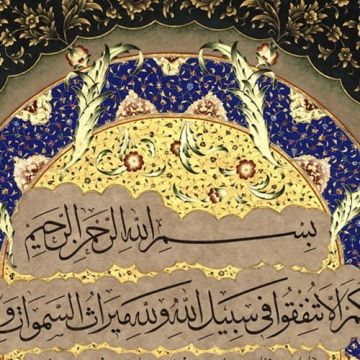 بِسْمِ اللهِ الرَّحْمنِ الرَّحيمِ
اَلّا تُنْفِقُوا فی سَبيلِ اللهِ وَلِلّهِ ميراثُ السَّمواتِ وَ